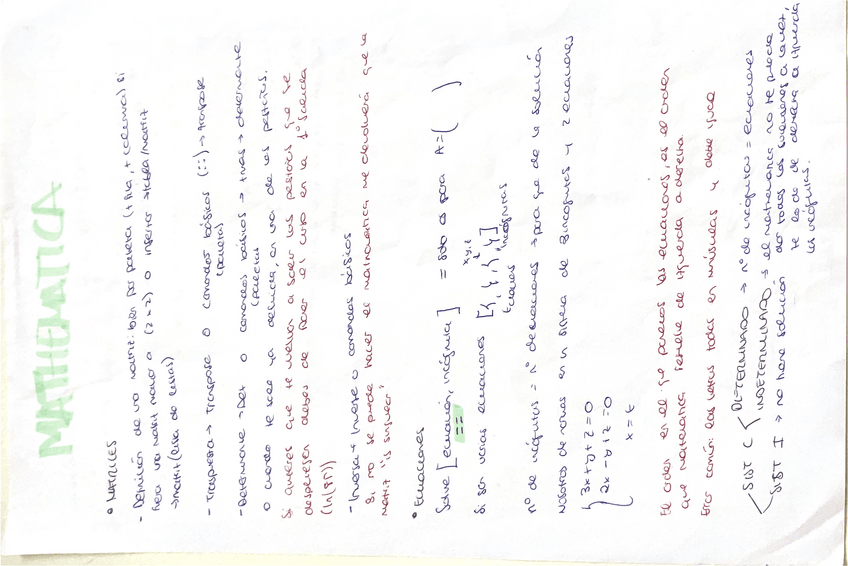 MATHEMATICA
• MATRICES
- Definición de una matriz: bien por paleta (1 fila, + columnas) si
fuera una matriz mayor o (2x2) o inferior → tabla/matriz
→ matriz (lista de listas)
- Traspuesta → Transpose o comandos básicos (::) → transpose
(paleta)
- Determinante → Det o comandos básicos → más → determinante
(paleta)
o cuando te sale ya definida, en una de las pestañas.
Si quieres que te vuelvan a salir las pestañas que se
despliegan debes de poner el curso en la 1ª salida
(In[81])
- Inversa → Inverse o comandos básicos
Si no se puede hacer el mathematica me devolverá que la
matriz "is singular"
• Ecuaciones
Solve [ecuación, incógnita] = solo a para A = ( )
==
Si son varias ecuaciones [{ , }, { , }]
x, y, z
Ecuaciones incógnitas
nº de incógnitas = nº de ecuaciones → para que de la solución
Nosotros de normal en un sistema de 3 incógnitas y 2 ecuaciones
3x + y + z = 0
2x - y + z = 0
x = t
El orden en el que ponemos las ecuaciones, es el orden
que mathematica resuelve de izquierda a derecha.
Error común: las letras todas en minúsculas y doble igual
SIST C DETERMINADO → nº de incógnitas = ecuaciones
INDETERMINADO → el mathematica no te puede
dar todas las soluciones a la vez,
te las da de derecha a izquierda
las incógnitas.
SIST I → no tiene solución